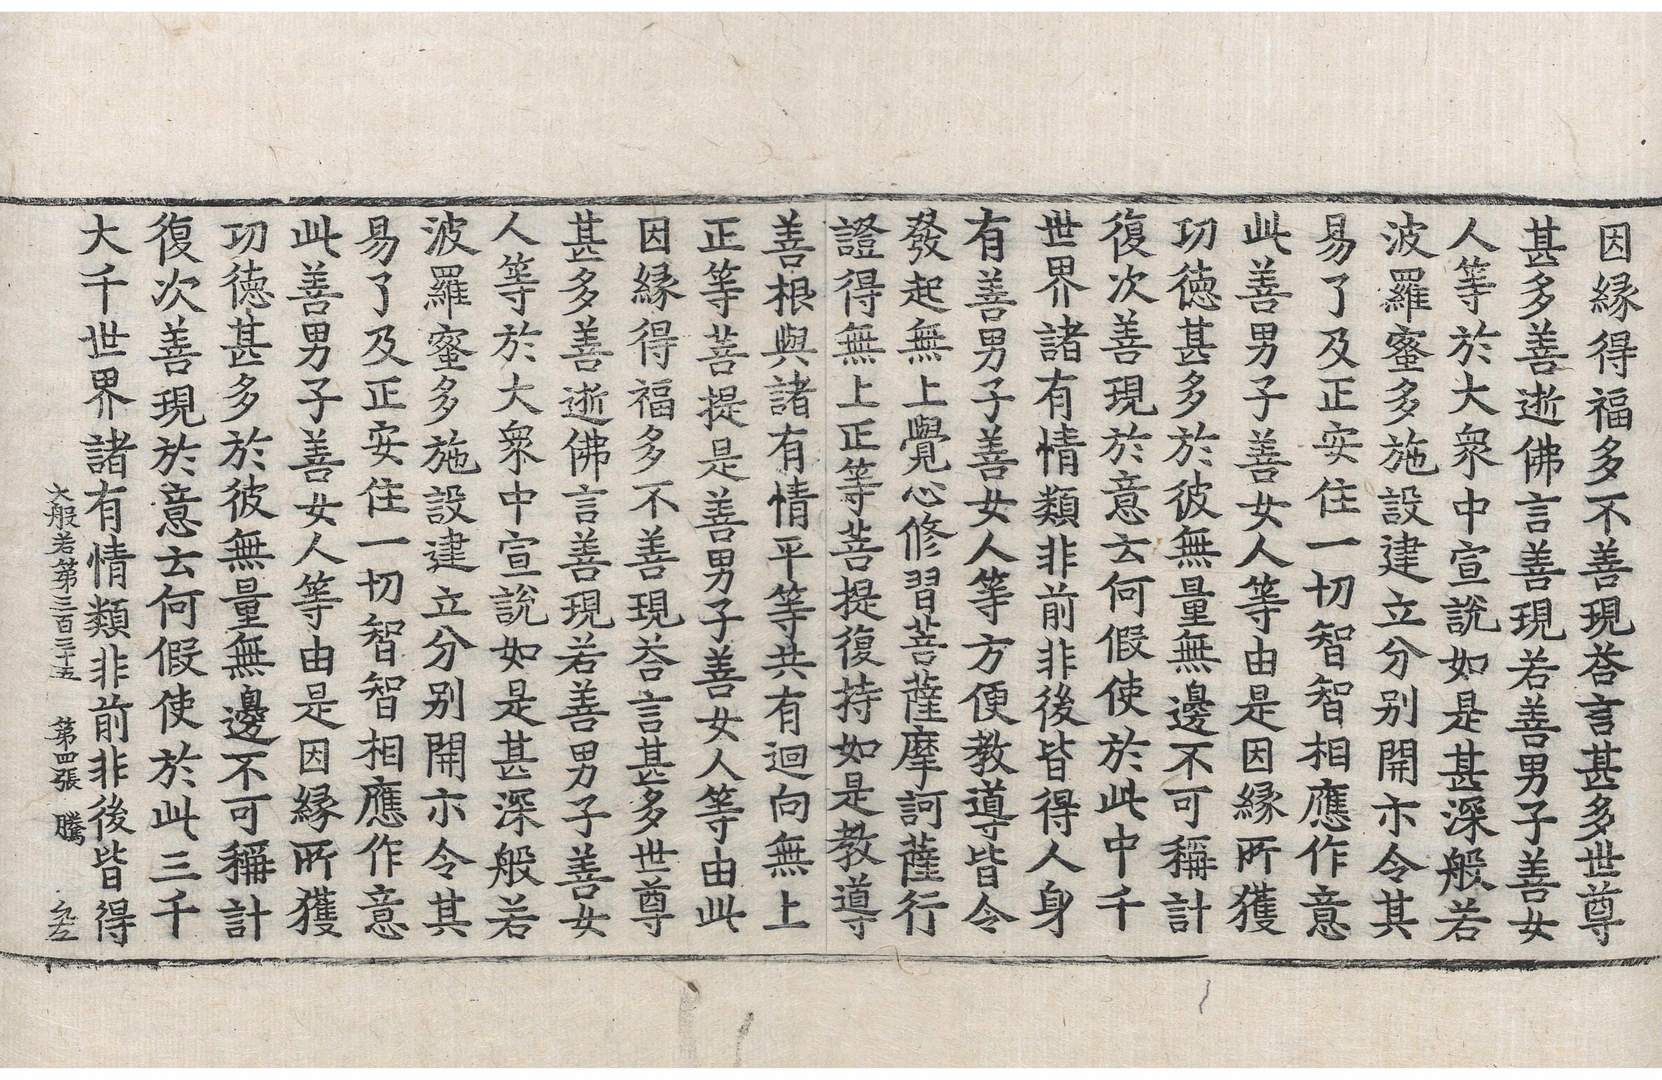 因緣得福多不善現荅言甚多世尊
甚多善逝佛言善現若善男子善女
人等於大衆中宣說如是甚深般若
波羅蜜多施設建立分别開示令其
易了及正安住一切智智相應作意
此善男子善女人等由是因緣所獲
功德甚多於彼無量無邊不可稱計
復次善現於意云何假使於此中千
世界諸有情類非前非後皆得人身
有善男子善女人等方便教導皆令
發起無上覺心修習菩薩摩訶薩行
證得無上正等菩提復持如是教導
善根與諸有情平等共有迴向無上
正等菩提是善男子善女人等由此
因緣得福多不善現荅言甚多世尊
甚多善逝佛言善現若善男子善女
人等於大衆中宣說如是甚深般若
波羅蜜多施設建立分别開示令其
易了及正安住一切智智相應作意
此善男子善女人等由是因緣所獲
功德甚多於彼無量無邊不可稱計
復次善現於意云何假使於此三千
大千世界諸有情類非前非後皆得
大般若第三百三十五 第四張 騰